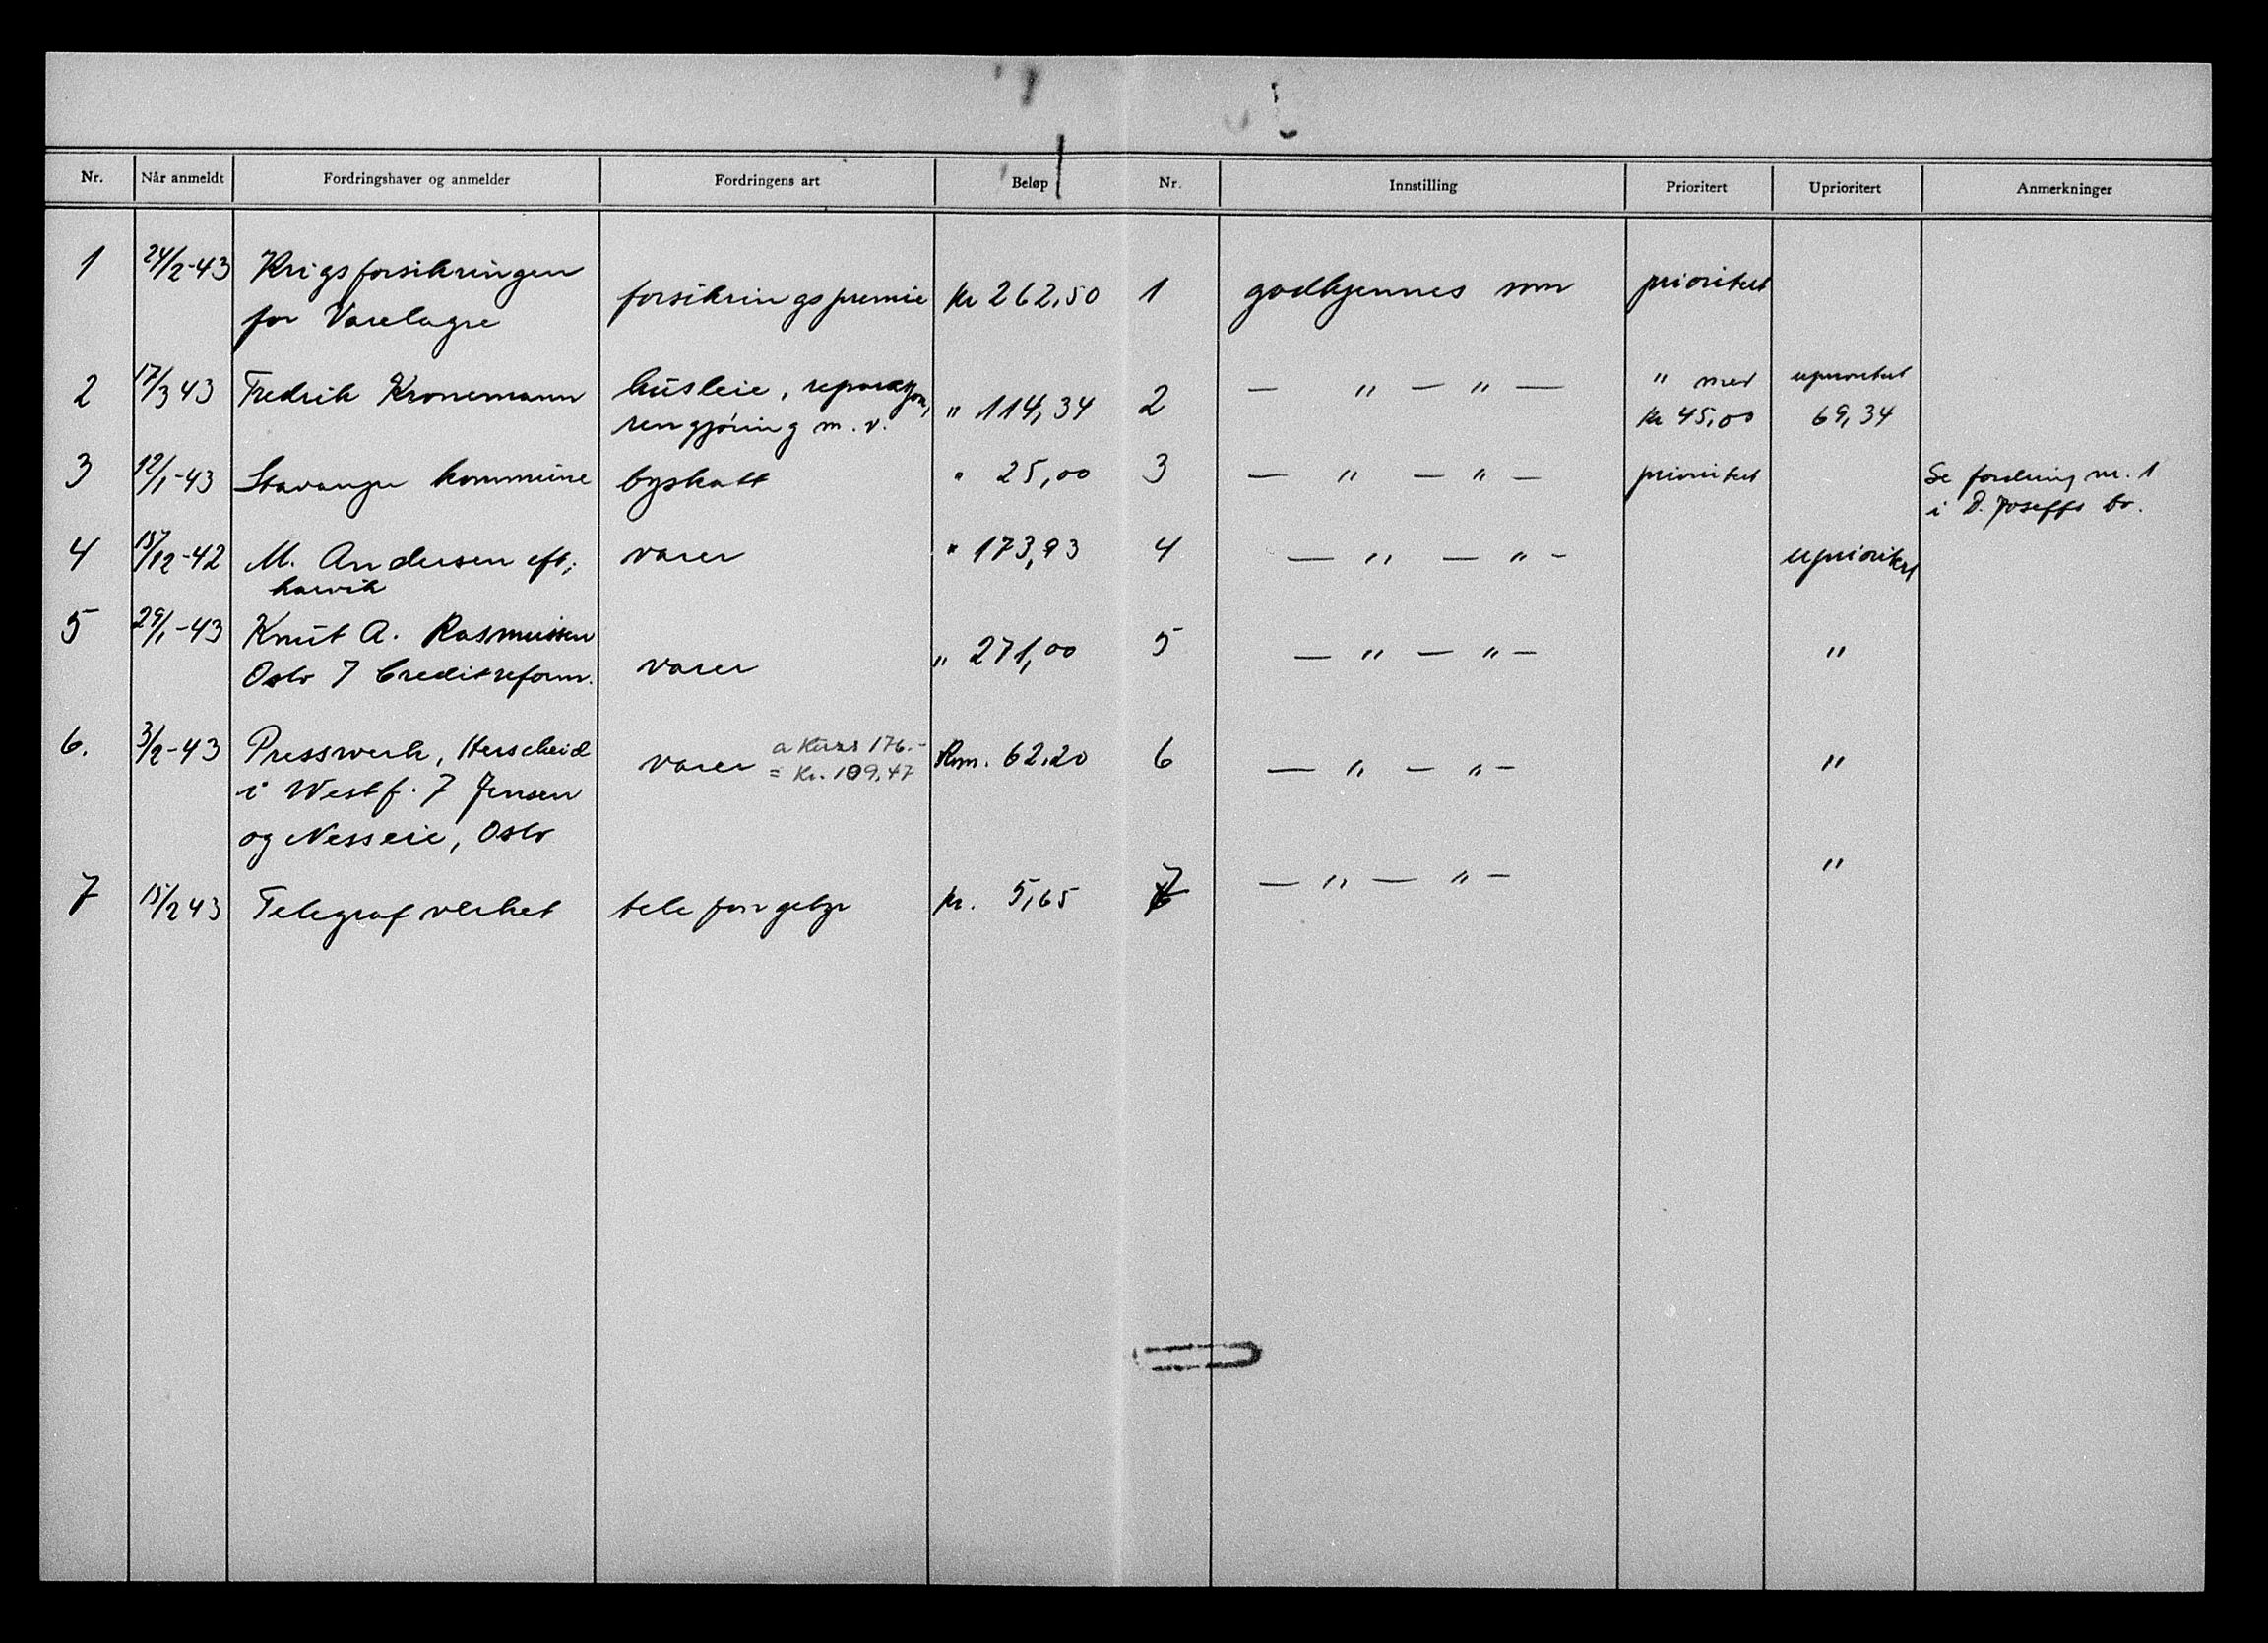 Nr. Når anmeldt Fordringshaver og anmelder Fordringens art Beløp Nr. Innstilling Prioritert Uprioritert Anmerkninger
1 24/2-43 Krigsforsikringen
for Varelagre forsikringspremie Kr 262,50 1 godkjennes som prioritert
2 17/3 43 Fredrik Kronemann husleie, reparasjon, — " — " — " med uprioritert
rengjøring m. v. " 114,34 2 Kr 45,00 69,34
3 12/1-43 Stavanger kommune byskatt " 25,00 3 — " — " — prioritert Se fordring nr. 1
i D. Joseffs bo.
4 15/12-42 M. Andersen eft; varer " 173,93 4 — " — " — uprioritert
5 29/1-43 Knut A. Rasmussen
Oslo 7 Creditreform. varer " 271,00 5 — " — " — "
6. 3/2-43 Presswerk, Herscheid varer a Kurs 176.- Rm. 62,20 6 — " — " — "
= Kr. 109,47
i Westf. 7 Jensen
og Nesseie, Oslo
7 15/2 43 Telegrafverket telefongebyr kr. 5,65 7 — " — " — "